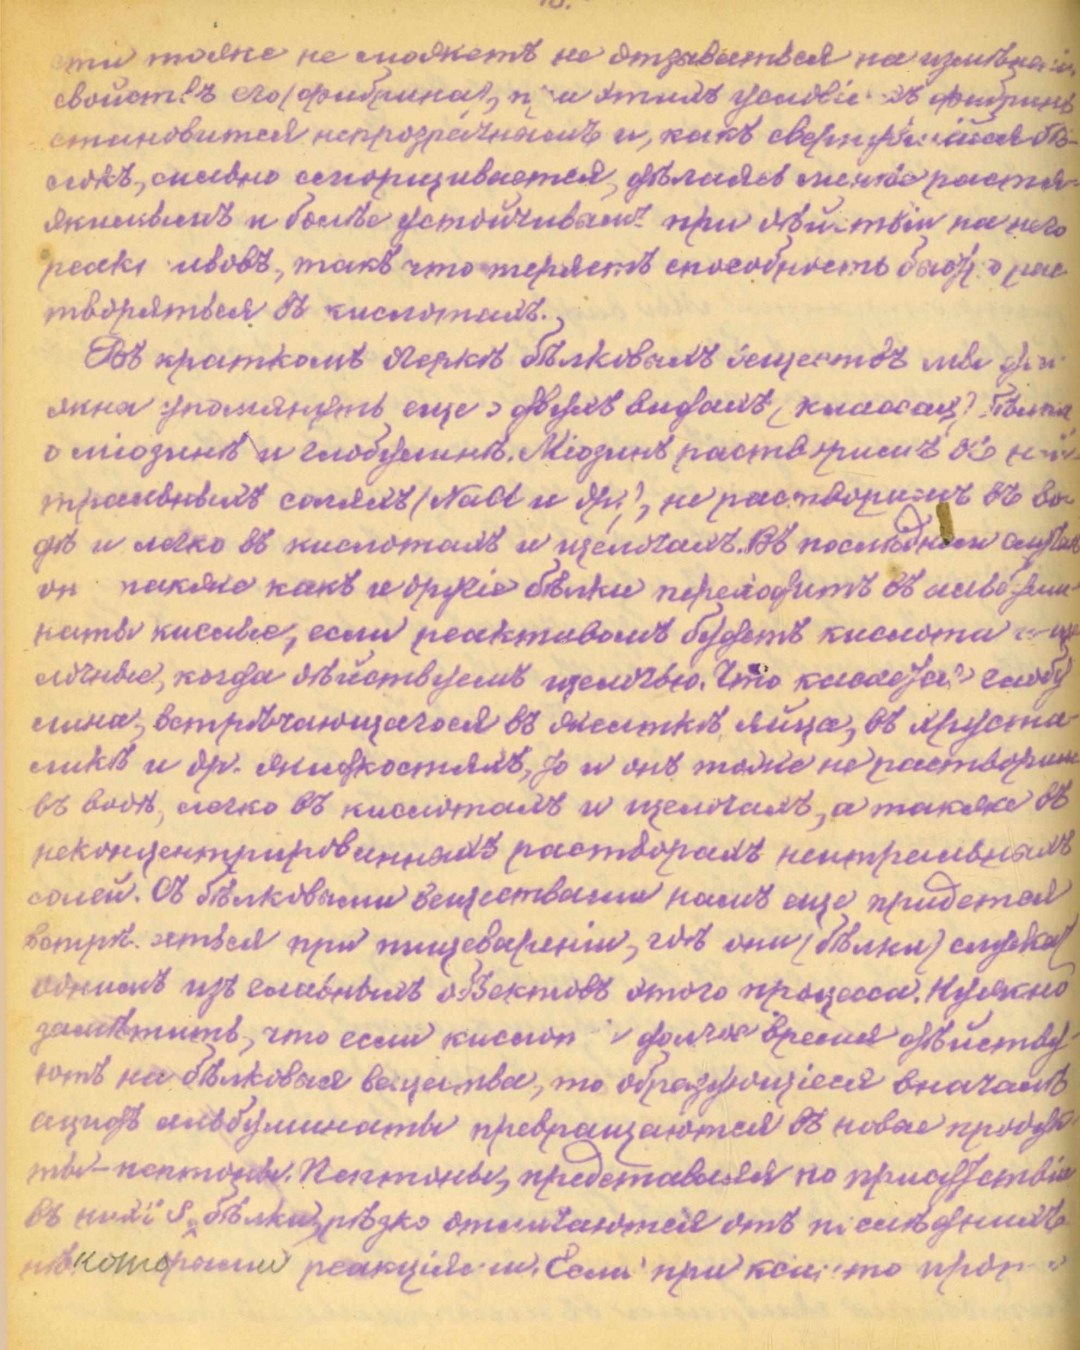 эти тоже не можетъ не отзываться на измѣнені
свойствъ его (фибрина), при этихъ условіяхъ фибринъ
становится непрозрачнымъ и, какъ свернувшійся бѣ-
локъ, сильно сморщивается, дѣлаясь менѣе растя-
жимымъ и болѣе устойчивымъ при дѣйствіи на него
реактивовъ, такъ что теряетъ способность быстро рас
творяться въ кислотахъ.
Въ краткомъ очеркѣ бѣлковыхъ веществъ мы дол
жны упомянуть еще о двухъ видахъ (классахъ) бѣлка
о міозинѣ и глобулинѣ. Міозинъ растворимъ въ ней-
тральныхъ соляхъ (NaCl и др.), не растворимъ въ во-
дѣ и легко въ кислотахъ и щелочахъ. Въ послѣднемъ случаѣ
он также какъ и другіе бѣлки переходитъ въ альбуми-
наты кислые, если реактивомъ будетъ кислота и ще
лочные, когда дѣйствуемъ щелочью. Что касается глобу
лина, встрѣчающагося въ желткѣ яйца, въ хруста-
ликѣ и др. жидкостяхъ, то и онъ тоже не растворим
въ водѣ, легко въ кислотахъ и щелочахъ, а также въ
неконцентрированныхъ растворахъ нейтральныхъ
солей. Съ бѣлковыми веществами намъ еще придется
встрѣчаться при пищевареніи, гдѣ они (бѣлки) служатъ
однимъ изъ главныхъ объектовъ этого процесса. Нужно
замѣтить, что если кислоты долгое время дѣйству
ютъ на бѣлковыя вещества, то образующіеся вначалѣ
ацидъ альбуминаты превращаются въ новые продук
ты – пептоны. Пептоны, представляя по присутствію
въ нихъ S, бѣлки, рѣзко отличаются отъ послѣднихъ
нѣкоторыми реакціями. Если при